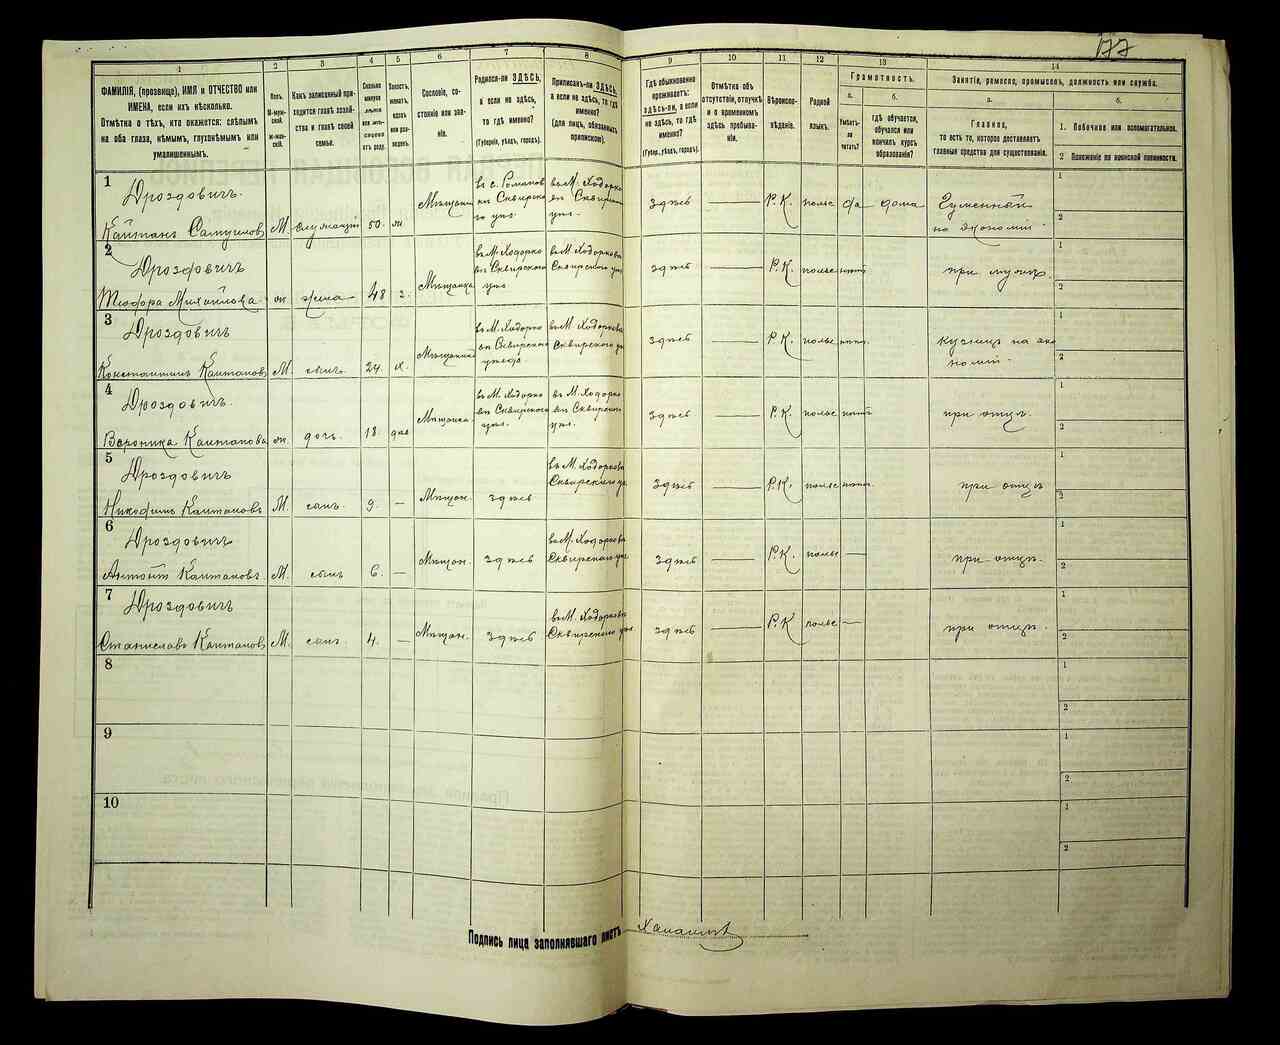 177
1
2
3
4
5
6
7
8
9
10
11
12
13
14
ФАМИЛІЯ, (прозвище), ИМЯ и ОТЧЕСТВО или
ИМЕНА, если ихъ нѣсколько.
Отмѣтка о тѣхъ, кто окажется: слѣпымъ
на оба глаза, нѣмымъ, глухонѣмымъ или
умалишеннымъ.
Полъ.
М-муж-
ской.
Ж-жен-
скій.
Какъ записанный при-
ходится главѣ хозяй-
ства и главѣ своей
семьи.
Сколько
минуло
лѣтъ
или мѣ-
сяцевъ
отъ роду.
Сословіе, со-
стояніе или зва-
ніе.
Родился-ли ЗДѢСЬ,
а если не здѣсь,
то гдѣ именно?
(Губернія, уѣздъ, городъ).
Приписанъ-ли ЗДѢСЬ,
а если не здѣсь, то гдѣ
именно?
(для лицъ, обязанныхъ
припискою).
Гдѣ обыкновенно
проживаетъ:
здѣсь-ли, а если
не здѣсь, то гдѣ
именно?
(Губер., уѣздъ, городъ).
Отмѣтка объ
отсутствіи, отлучкѣ
и о временномъ
здѣсь пребыва-
ніи.
Вѣроиспо-
вѣданіе.
Родной
языкъ.
Грамотность.
а.
б.
Умѣетъ-
ли
читать?
гдѣ обучается,
обучался или
кончилъ курсъ
образованія?
Занятіе, ремесло, промыселъ, должность или служба.
а.
б.
Главное,
то есть то, которое доставляетъ
главныя средства для существованія.
1. Побочное или вспомогательное.
2 Положеніе по воинской повинности.
1
Дроздовичъ
Каэтанъ Самуиловъ М. служащій 50. ж. Мѣщанинъ въ с. Романов
къ Сквирско
го уѣз. въ М. Ходорко
въ Сквирского
уѣз. здѣсь Р.К. польс да дома Гуменный
на экономіи
1
2
2
Дроздовичъ
Теофора Михайлова ж жена 48 г. Мѣщанка въ М. Ходорко
въ Сквирского
уѣз въ М. Ходорко
Сквирского уѣз здѣсь Р.К. польс нѣтъ при мужѣ.
1
2
3
Дроздовичъ
Константинъ Каэтановъ М. сынъ. 24. х. Мѣщанинъ въ М. Ходорко
въ Сквирского
уѣзда въ М. Ходоркова
Сквирского уѣ здѣсь Р.К. польс нѣтъ. кузнецъ на эко
номіи
1
2
4
Дроздовичъ.
Вероника Каэтанова ж дочь. 18. дев Мѣщанка. въ М. Ходорко
въ Сквирского
уѣз. въ М. Ходорко
въ Сквирског
уѣз. здѣсь Р.К. польс нѣтъ при отцѣ.
1
2
5
Дроздовичъ
Никодимъ Каэтановъ М. сынъ. 9. — Мѣщан. здѣсь въ М. Ходоркова
Сквирского уѣ здѣсь Р.К. польс нѣтъ. при отцѣ
1
2
6
Дроздовичъ
Антонъ Каэтановъ. М. сынъ 6. — Мѣщан. здѣсь въ М. Ходоркова
Сквирского уѣз здѣсь Р.К. польс — при отцѣ.
1
2
7
Дроздовичъ
Станиславъ Каэтановъ М. сынъ. 4. — Мѣщан. здѣсь въ М. Ходоркова
Сквирского уѣз здѣсь Р.К польс — при отцѣ.
1
2
8
1
2
9
1
2
10
1
2
Подпись лица заполнявшаго листъ